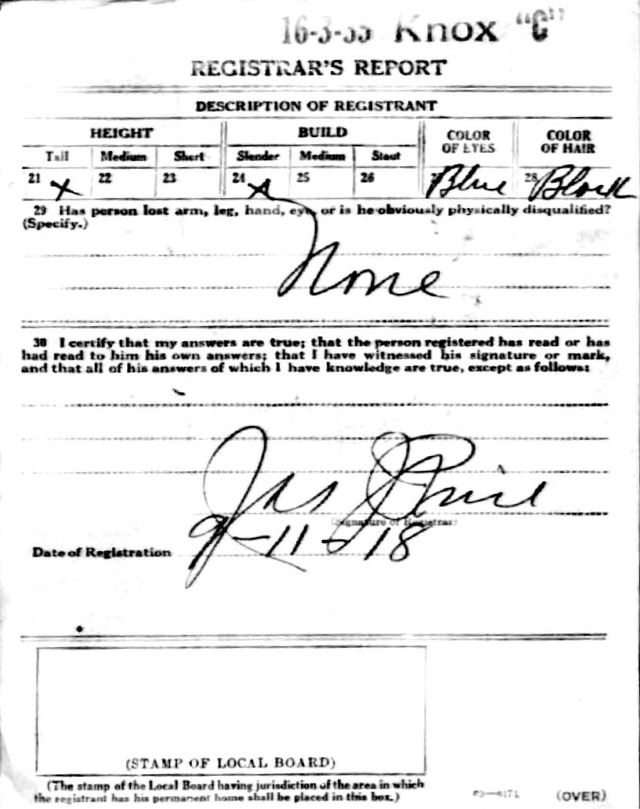 16-3-35 Knox "C"
REGISTRAR'S REPORT
DESCRIPTION OF REGISTRANT
HEIGHT BUILD COLOR OF EYES COLOR OF HAIR
Tall Medium Short Slender Medium Stout
21 x 22 23 24 x 25 26 Blue 28 Black
29 Has person lost arm, leg, hand, eye, or is he obviously physically disqualified?
(Specify.)
None
30 I certify that my answers are true; that the person registered has read or has
had read to him his own answers; that I have witnessed his signature or mark,
and that all of his answers of which I have knowledge are true, except as follows:
Jas
(Signature of Registrar)
Date of Registration 9-11-18
(STAMP OF LOCAL BOARD)
(The stamp of the Local Board having jurisdiction of the area in which
the registrant has his permanent home shall be placed in this box.)
03—6171 (OVER)